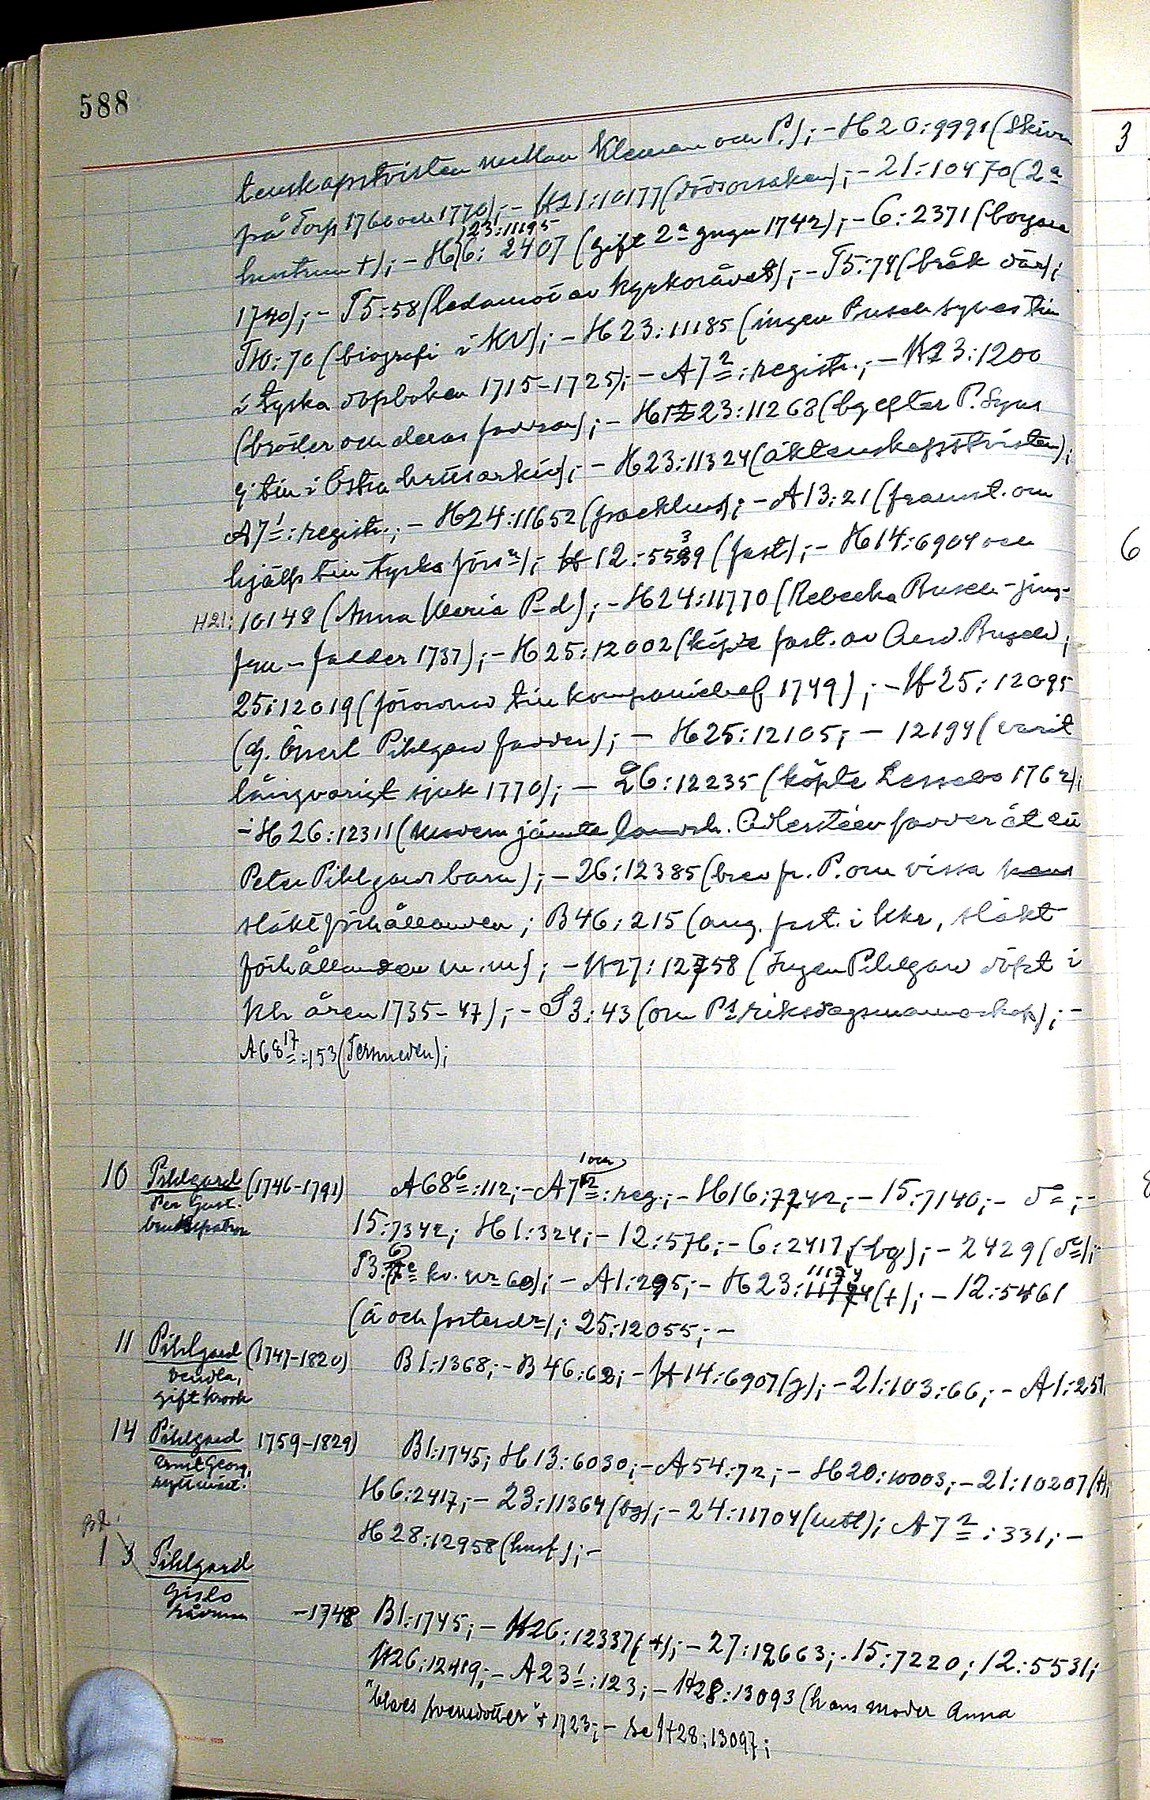 588
tenskapstvisten mellan Kleman och P.); - H20:9991 (
på Torp 1766 och 1770); - H21:10177 (dödsorsaken); - 21:10470 (2a
hustrun +); - H6: 2407 (gift 2a gngn 1742); - 6:2371 (borgare
23:11195
1740); - T5:58 (ledamot av kyrkorådet); - T5:74 (bråk där);
T10:70 (biografi i KV); - H23:11185 (ingen Busch synes till
i Tyska dopboken 1715-1725); - A7²: registr.; - H23:1200
(bröder och deras farsan); - H23:11268 (by efter P. Synes
ej till i Östra); - H23:11324 (äktenskapstvisten);
A7¹: registr.; - H24:11652 (); - A13:21 (framst. om
hjälp till tyska förs:n); H12:5539 (fast); - H14:6904 och
H21: 10148 (Anna Maria P-d); - H24:11770 (Rebecka Busch - jung-
fru - fadder 1737); - H25:12002 (köpte fast. av Busch);
25:12019 (förordnad till kompanichef 1749); - H25:12095
(G. Evert Pihlgard fadder); - H25:12105; - 12194 (varit
långvarigt sjuk 1770); - 26:12235 (köpte Lessebo 1762);
- H26:12311 (modern jämte landsh. Adlersteen fadder åt en
Peter Pihlgards barn); - 26:12385 (brev fr. P. om vissa
släktförhållanden; B46:215 (ang. fast. i Kkr, släkt
förhållanden m.m); - H27:12758 (Ingen Pihlgard döpt i
Khr åren 1735-47); - S3:43 (om P:s riksdagsmannaskap); -
A68¹⁷:153 (Tersmeden);
10 Pihlgard (1746-1791) A68⁶:112; - A7²: reg.; - H16:7242; - 15:7140; - do; -
1 och
Per Gust.
brukspatron
15:7342; H1:324; - 12:576; - 6:2417 (bg); - 2429 (do);
T3: (kv. nr 60); - A1:295; - H23: 11174 (+); - 12:5461
(ä och fosterdr); 25:12055; -
11 Pihlgard (1747-1820) B1:1368; - B46:62; - H14:6907 (g); - 21:103:66; - A1:251
Vendla,
gift Krook
14 Pihlgard 1759-1829) B1:1745; H13:6030; - A54:72; - H20:10003; - 21:10207 (+);
Ernst Georg,
ryttmäst.
H6:2417; - 23:11364 (bg); - 24:11704 (); A7²:331; -
H28:12958 (); -
1 3 Pihlgard
Gislo
rådman
-1748 B1:1745; - H26:12337 (+); - 27:12663; - 15:7220; 12:5531;
H26:12419; - A23¹:123; - H28:13093 (hans moder Anna
"Claes Svensdotter" + 1723; - se H28:13097;
3
6